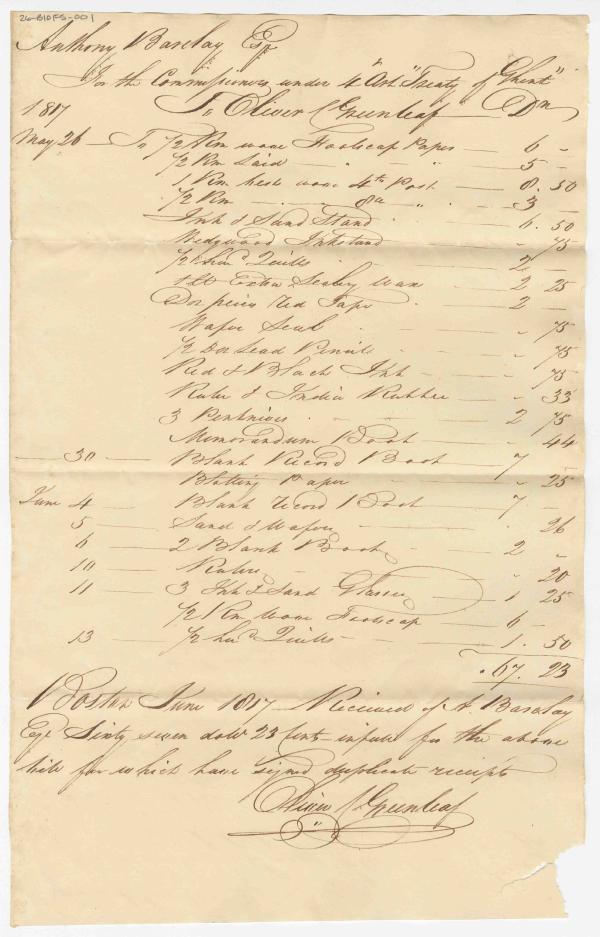 26-B10FS-001
Anthony Barclay Esqr
For the Commissioners under 4 "Art" Treaty of Ghent"
To Oliver C Greenleaf Dr
1817
May 26 — To 1/2 Rm wove Foolscap Paper — 6 –
1/2 Rm Laid — " — 5 –
1 Rm best wove 4to Post — 8. 50
1/2 Rm — 8vo " — 3 –
Ink & Sand Stand — 6. 50
Wedgwood Inkstand — " 75
1/2 hund Quills — 2 –
1 lb Extra Sealing Wax — 2 25
Doz pieces Red Tape — 2 –
Wafer Seal — " 75
1/2 Doz Lead Pencils — " 75
Red & Black Ink — " 75
Ruler & India Rubber — " 33
3 Penknives — 2 75
Memorandum Book — " 44
— 30 — Blank Record Book — 7 –
Blotting Paper — " 25
June 4 — Blank Record Book — 7 –
5 — Sand & Wafers — " 26
6 — 2 Blank Books — 2 –
10 — Ruler — " 20
11 — 3 Ink & Sand Glasses — 1 25
1/2 Rm Wove Foolscap — 6 –
13 — 1/2 hund Quills — 1. 50
67. 23
Boston June 1817 Received of A. Barclay
Esqr Sixty seven dolls 23 Cents in full for the above
bill for which have signd duplicate receipts
Oliver C Greenleaf